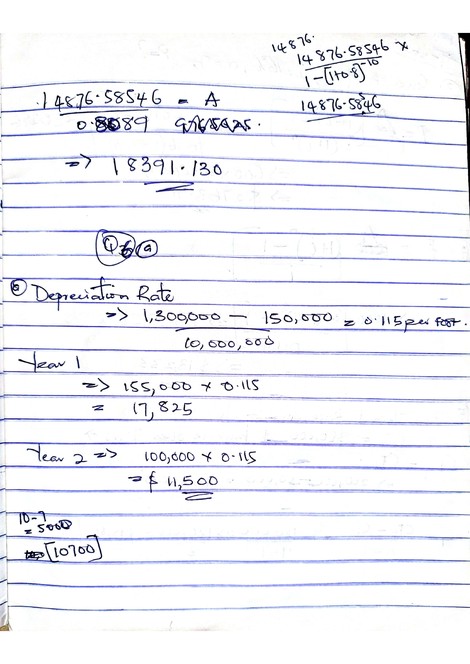 14876.
14876.58546 ×
1-(1+0.8)^-10
14876.5846
14876.58546 = A
0.8089
=> 18391.130
Q6 a
6 Depreciation Rate
=> 1,300,000 - 150,000 = 0.115 per foot.
10,000,000
Year 1
=> 155,000 × 0.115
= 17,825
Year 2 => 100,000 × 0.115
= $ 11,500
10-7
= 5000
[10700]